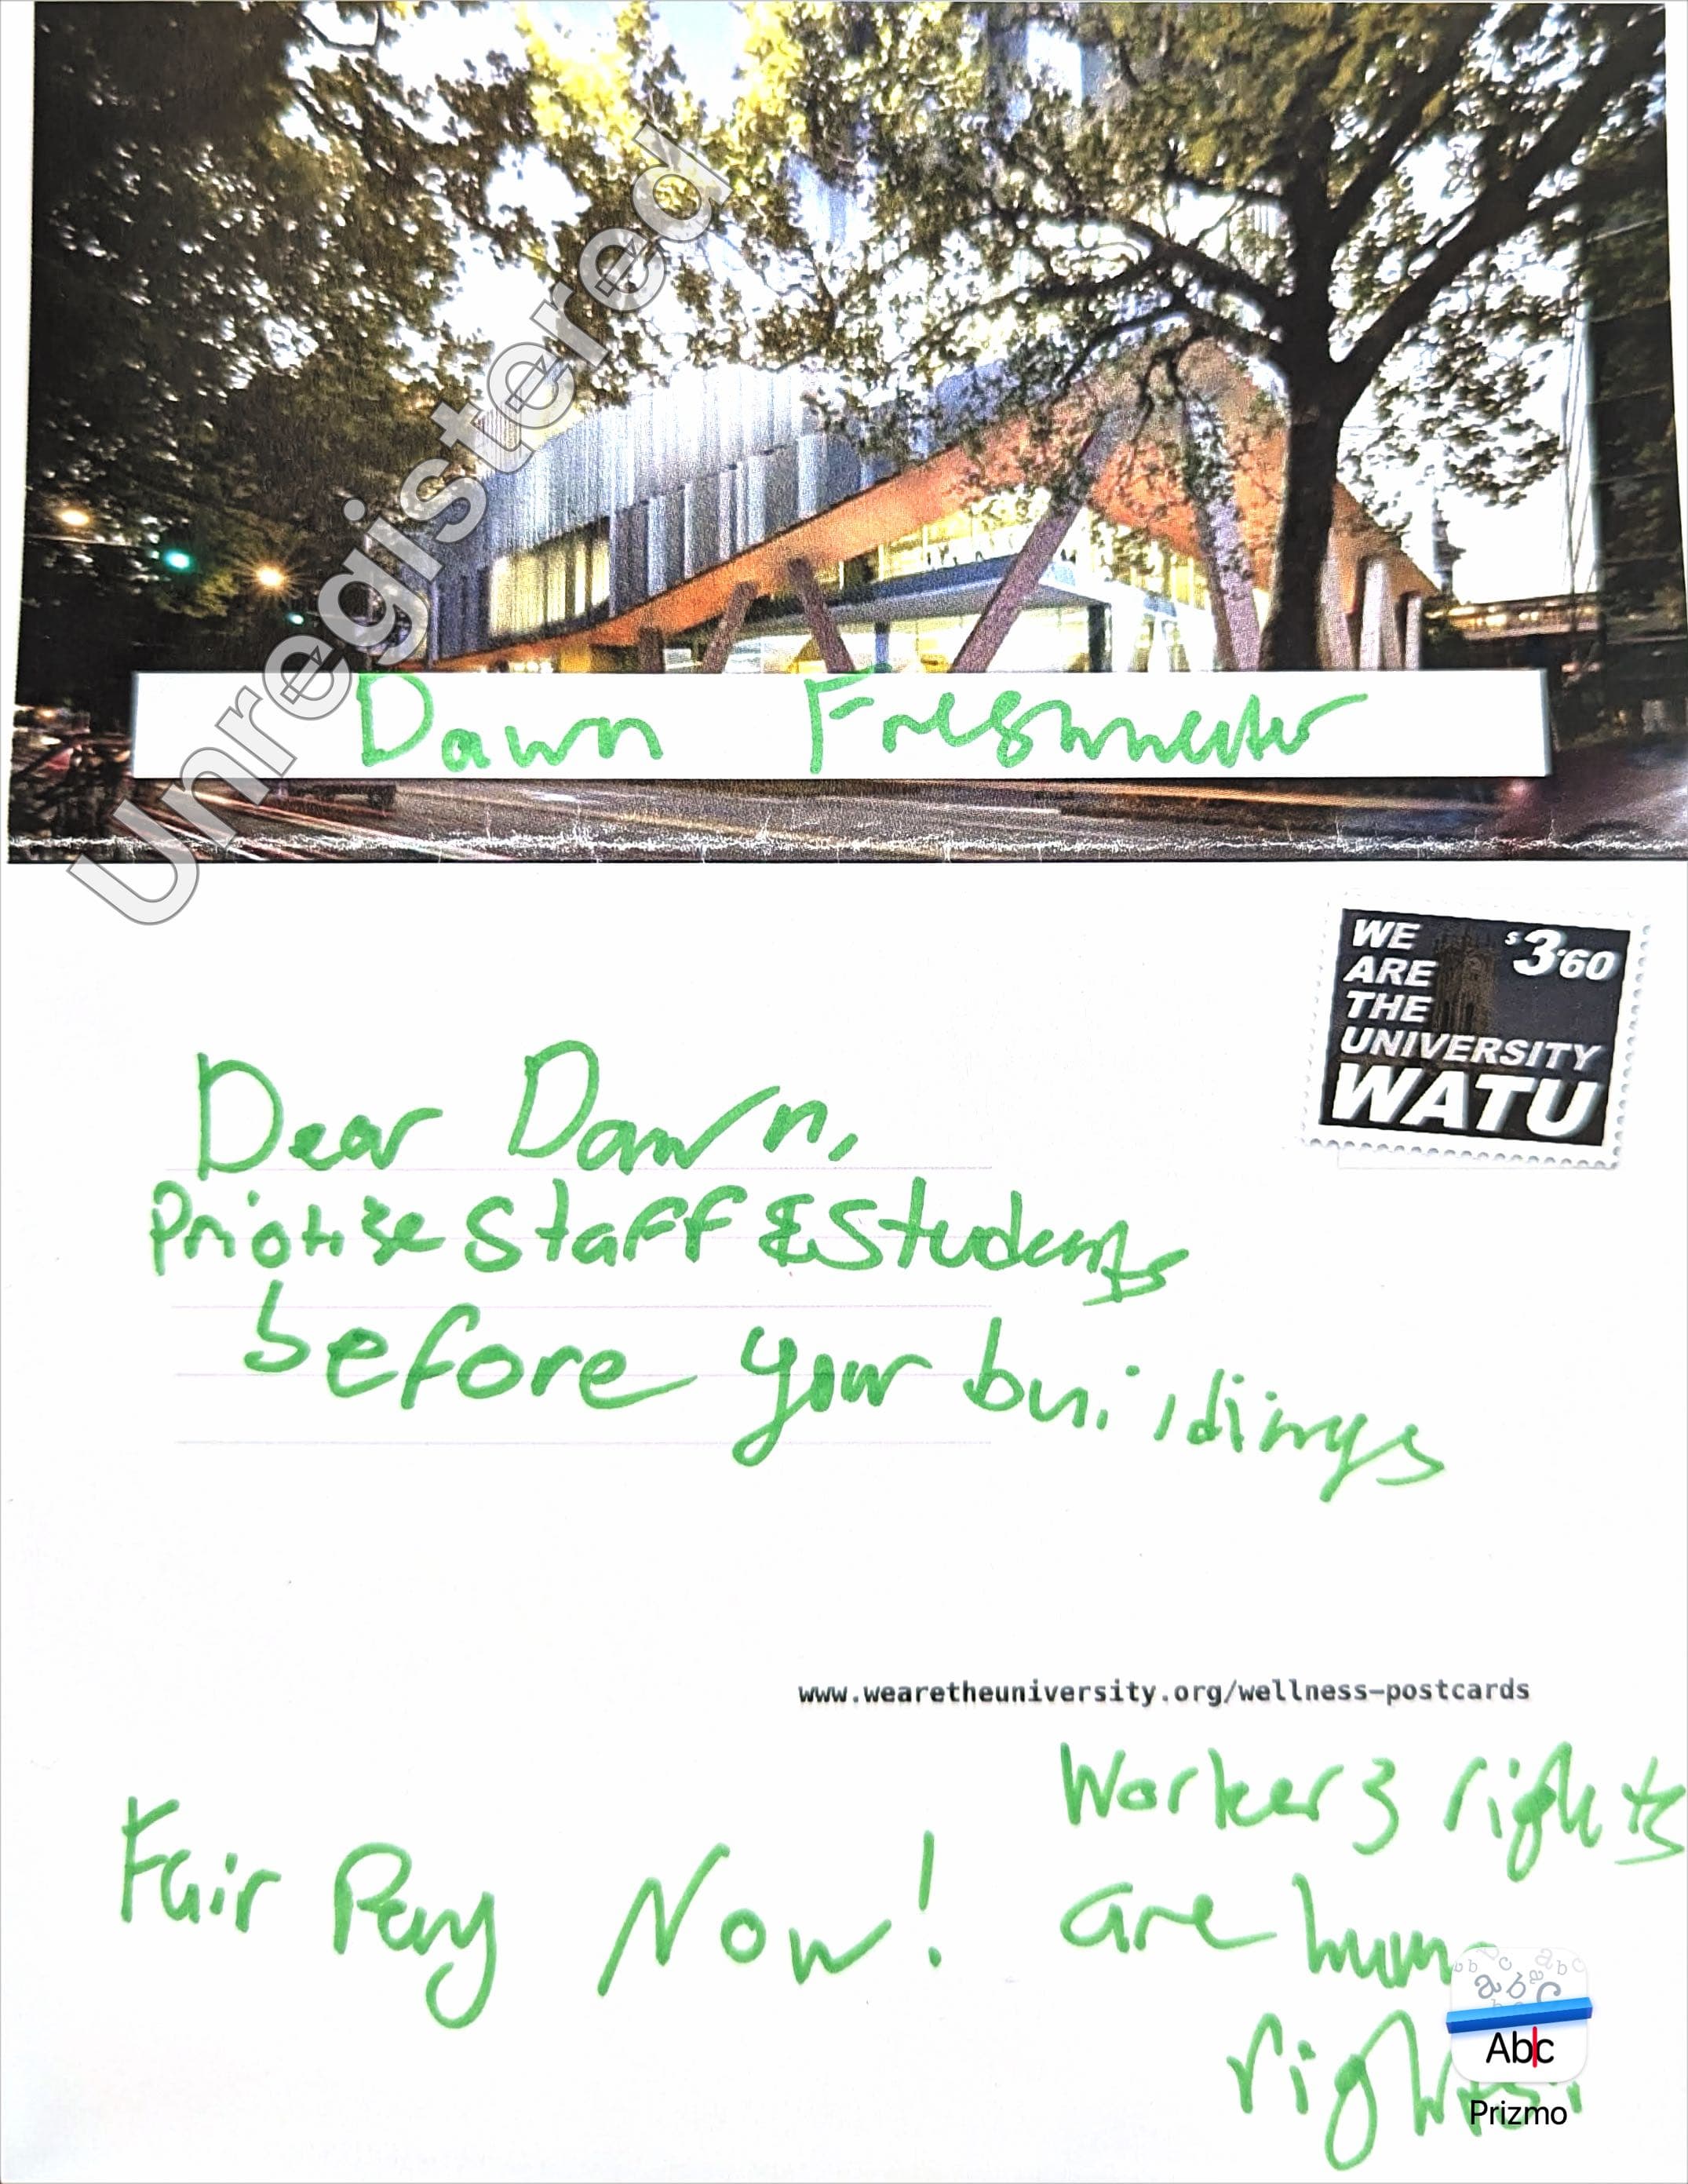 Unregistered
Dawn Freshwater
WE
ARE
THE
UNIVERSITY
WATU
$3.60
Dear Dawn,
Priotise Staff & Students
before your buildings
www.wearetheuniversity.org/wellness-postcards
Workers rights
are
rights
Fair Pay Now!
Abc
Prizmo